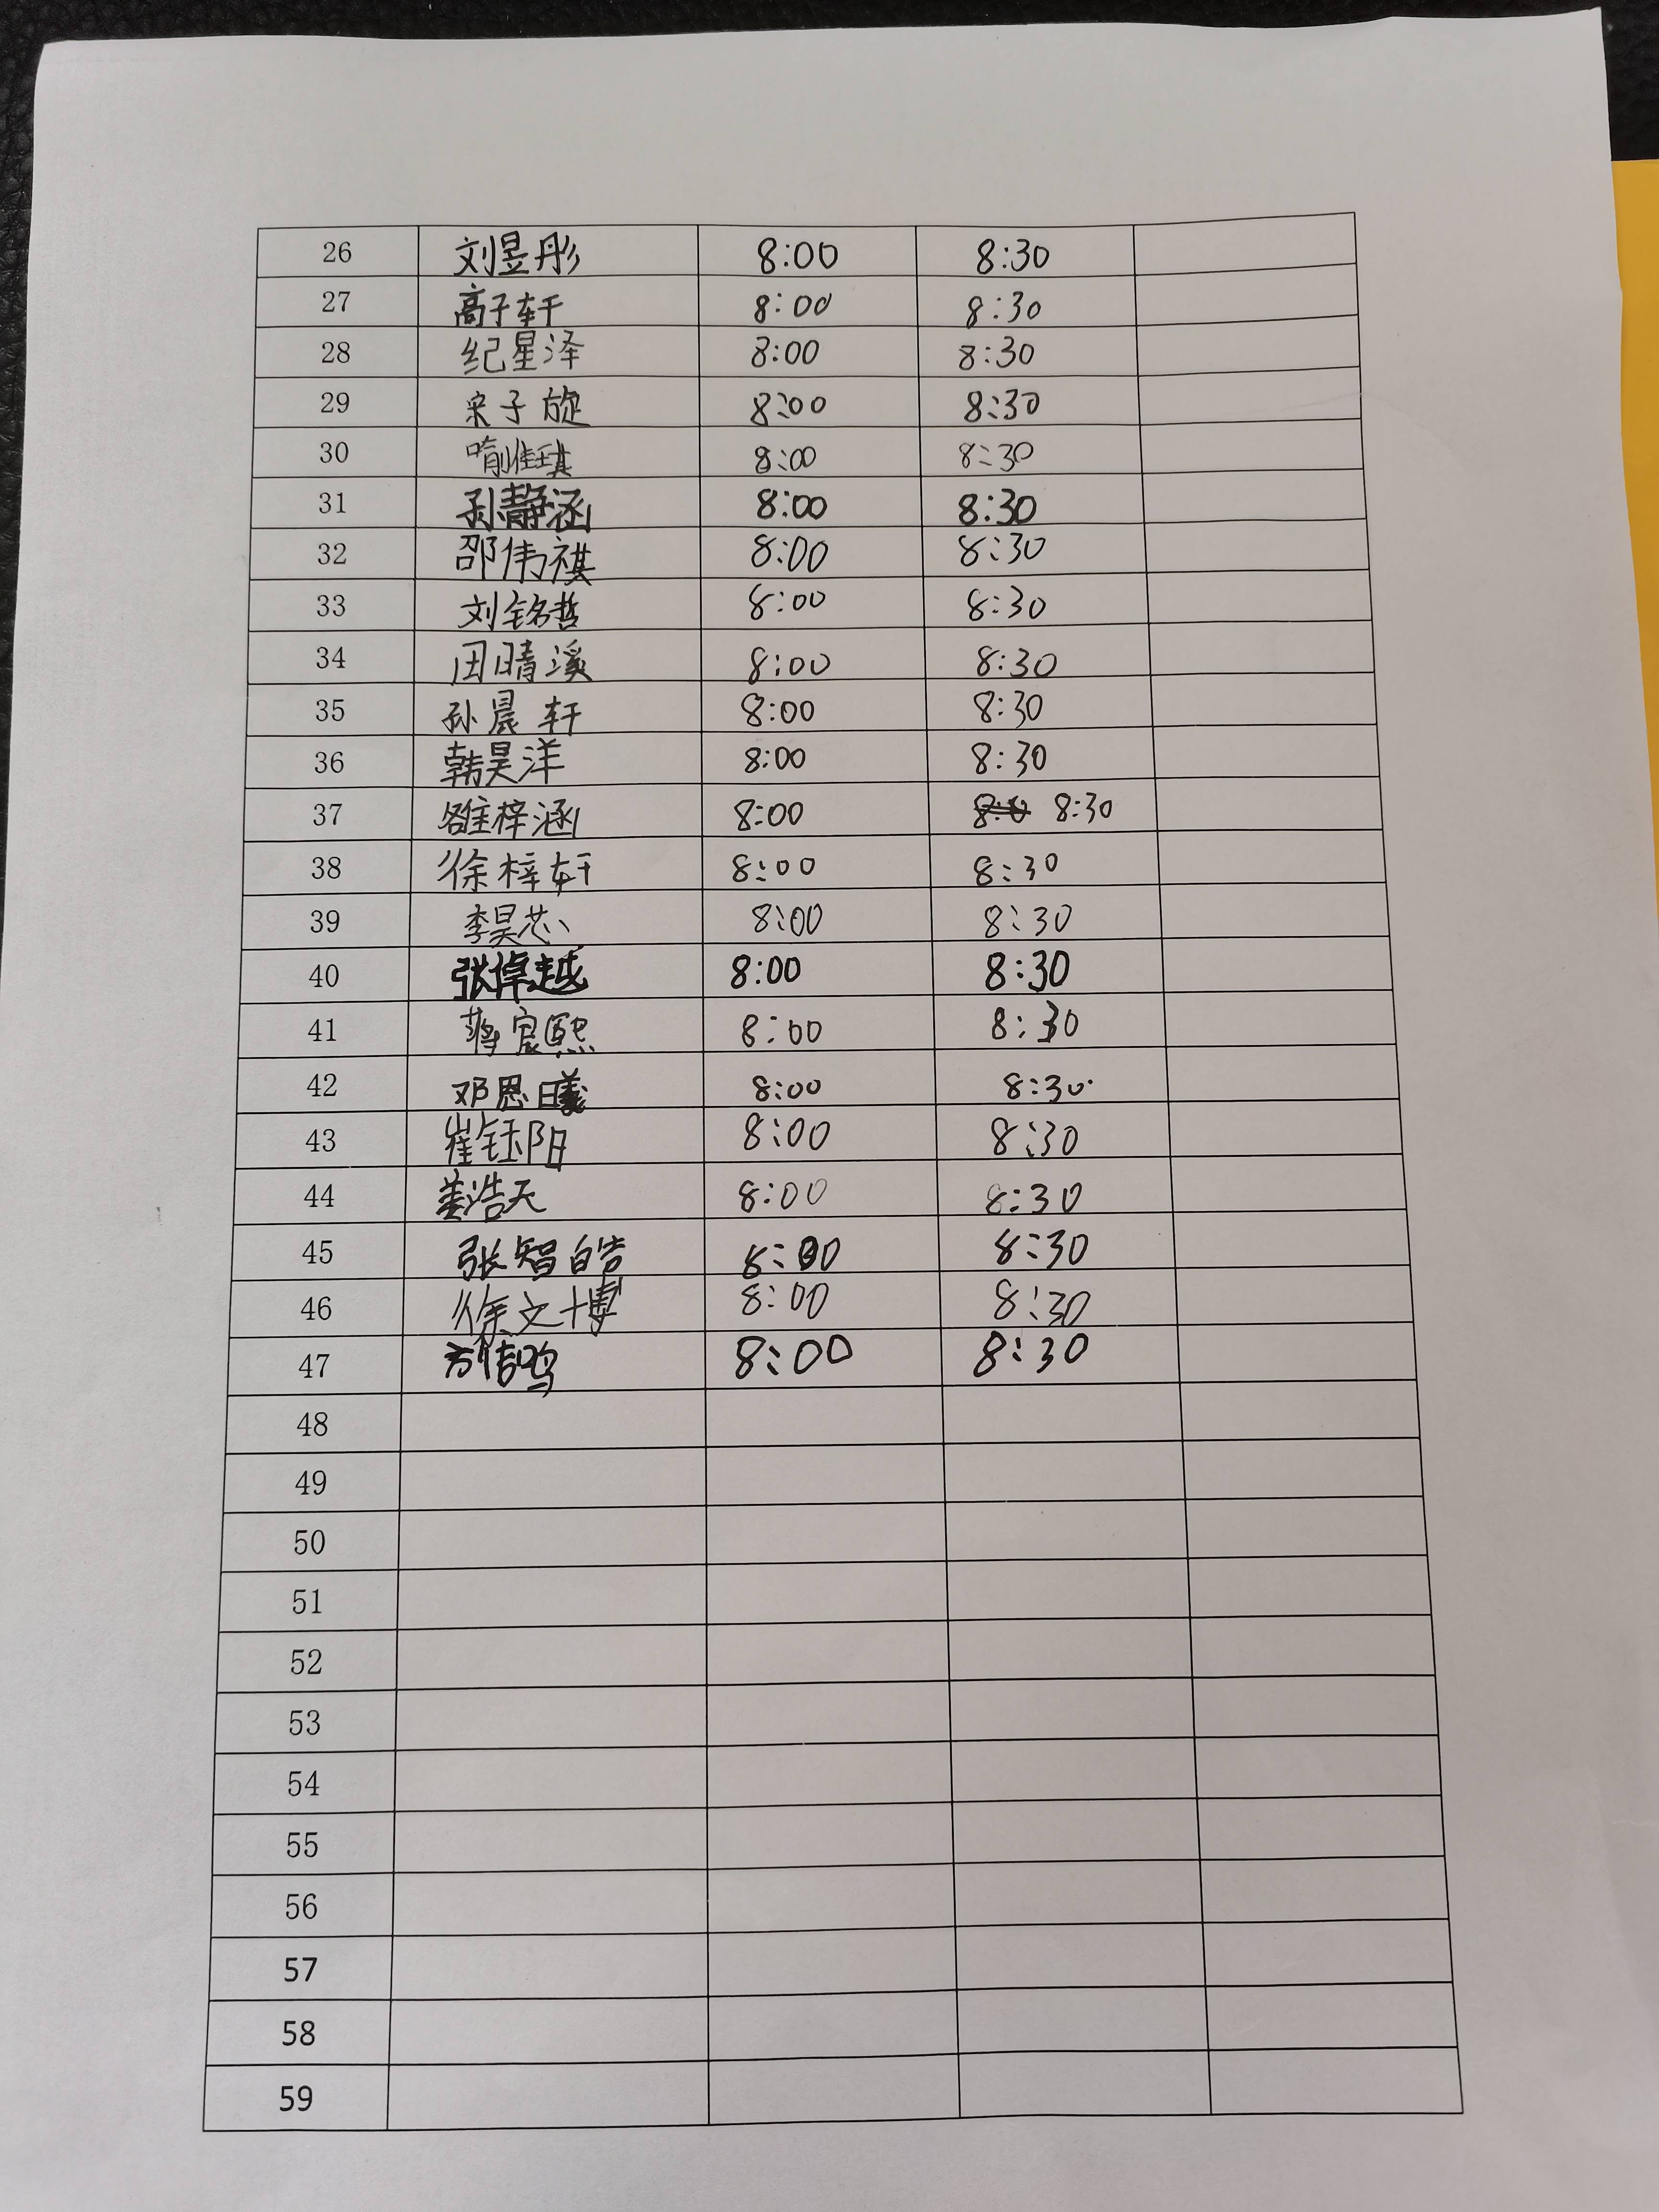 26 刘昱彤 8:00 8:30
27 高子轩 8:00 8:30
28 纪星泽 8:00 8:30
29 宋子旋 8:00 8:30
30 喻佳琪 8:00 8:30
31 孙静涵 8:00 8:30
32 邵伟祺 8:00 8:30
33 刘铭哲 8:00 8:30
34 田晴溪 8:00 8:30
35 孙晨轩 8:00 8:30
36 韩昊洋 8:00 8:30
37 雒梓涵 8:00 8:30
38 徐梓轩 8:00 8:30
39 李昊芯 8:00 8:30
40 张倬越 8:00 8:30
41 蒋宸熙 8:00 8:30
42 邓恩曦 8:00 8:30
43 崔钰阳 8:00 8:30
44 姜浩天 8:00 8:30
45 张智皓 8:00 8:30
46 徐文博 8:00 8:30
47 8:00 8:30
48
49
50
51
52
53
54
55
56
57
58
59